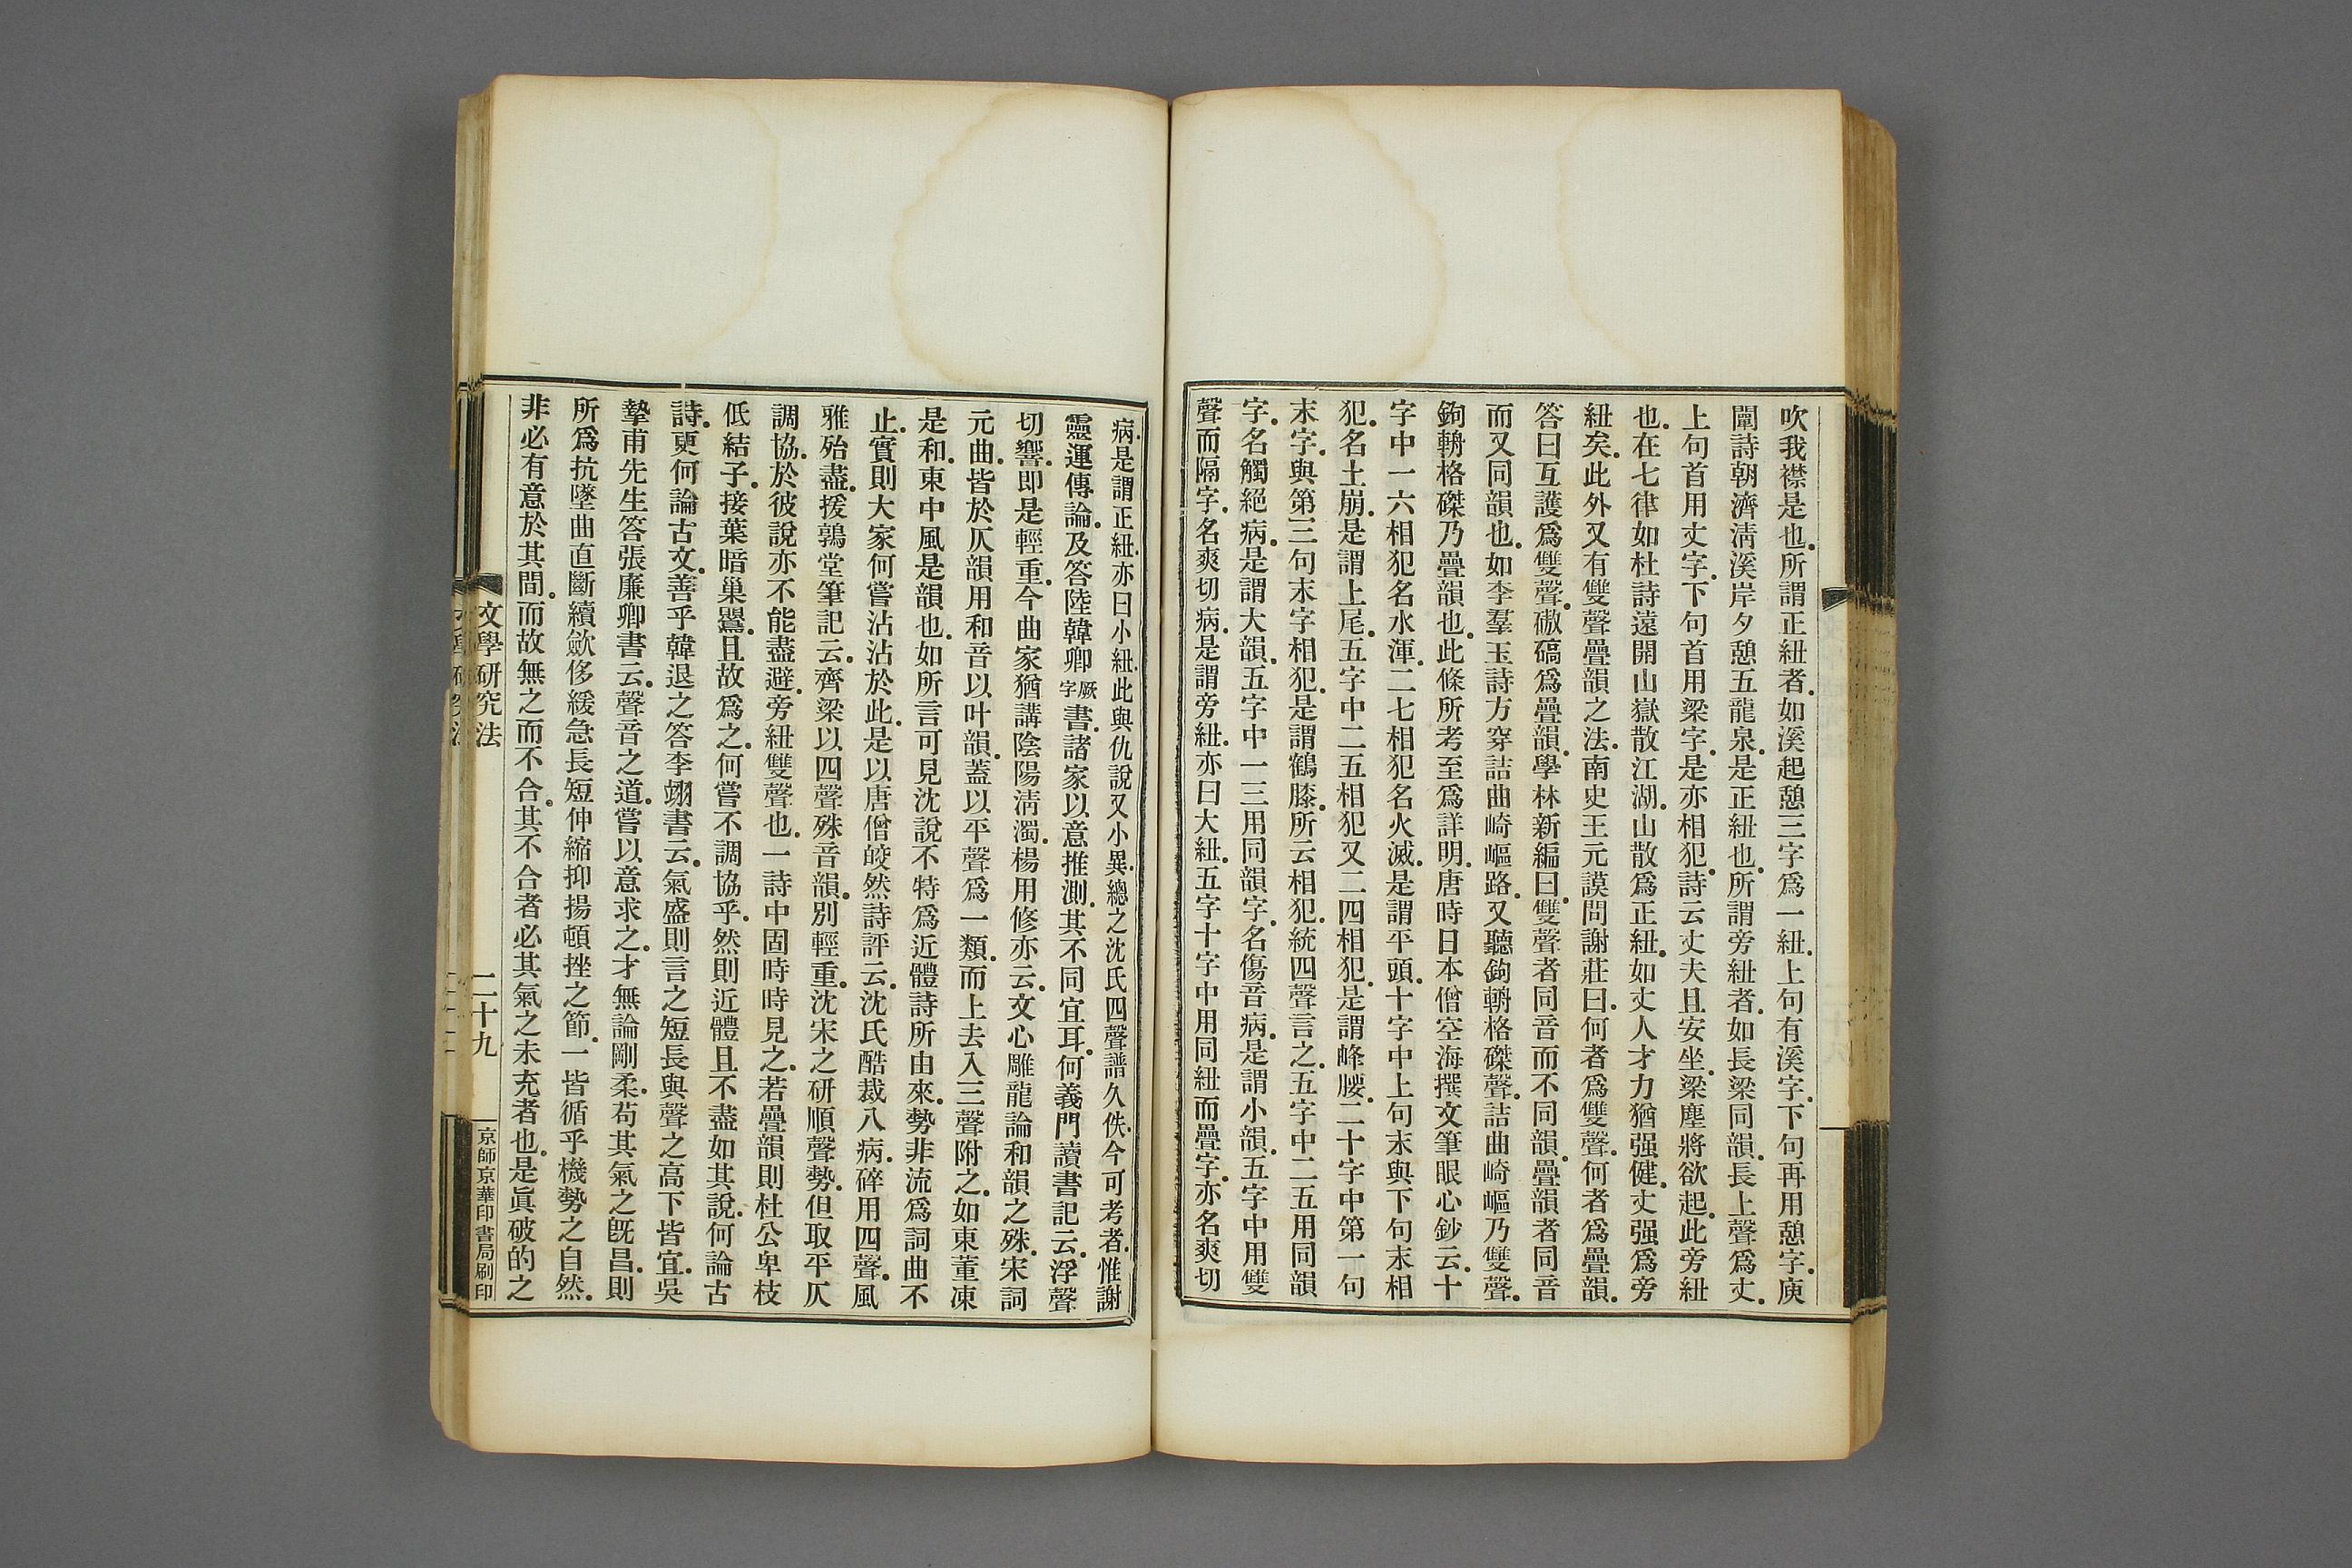 吹我襟是也。所謂正紐者。如溪起憩三字爲一紐。上句有溪字。下句再用憩字。庾
闡詩朝濟清溪岸夕憩五龍泉。是正紐也。所謂旁紐者。如長梁同韻。長上聲爲丈。
上句首用丈字。下句首用梁字。是亦相犯。詩云丈夫且安坐。梁塵將欲起。此旁紐
也。在七律如杜詩遠開山嶽散江湖。山散爲正紐。如丈人才力猶强健。丈强爲旁
紐矣。此外又有雙聲疊韻之法。南史王元謨問謝莊曰。何者爲雙聲。何者爲疊韻。
答曰互護爲雙聲。磝碻爲疊韻。學林新編曰。雙聲者同音而不同韻。疊韻者同音
而又同韻也。如李羣玉詩方穿詰曲崎嶇路。又聽鉤輈格磔聲。詰曲崎嶇乃雙聲。
鉤輈格磔乃疊韻也。此條所考至爲詳明。唐時日本僧空海撰文筆眼心鈔云。十
字中一六相犯名水渾。二七相犯名火滅。是謂平頭。十字中上句末與下句末相
犯。名土崩。是謂上尾。五字中二五相犯又二四相犯。是謂峰腰。二十字中第一句
末字。與第三句末字相犯。是謂鶴膝。所云相犯。統四聲言之。五字中二五用同韻
字。名觸絕病。是謂大韻。五字中一三用同韻字。名傷音病。是謂小韻。五字中用雙
聲而隔字。名爽切病。是謂旁紐。亦曰大紐。五字十字中用同紐而疊字。亦名爽切
病。是謂正紐。亦曰小紐。此與仇說又小異。總之沈氏四聲譜久佚。今可考者。惟謝
靈運傳論。及答陸韓卿厥字書。諸家以意推測。其不同宜耳。何義門讀書記云。浮聲
切響。即是輕重。今曲家猶講陰陽淸濁。楊用修亦云。文心雕龍論和韻之殊。宋詞
元曲。皆於仄韻用和音以叶韻。蓋以平聲爲一類。而上去入三聲附之。如東董凍
是和。東中風是韻也。如所言可見沈說不特爲近體詩所由來。勢非流爲詞曲不
止。實則大家何嘗沾沾於此。是以唐僧皎然詩評云。沈氏酷裁八病。碎用四聲。風
雅殆盡。援鶉堂筆記云。齊梁以四聲殊音韻。別輕重。沈宋之研順聲勢。但取平仄
調協。於彼說亦不能盡避。旁紐雙聲也。一詩中固時時見之。若疊韻則杜公卑枝
低結子。接葉暗巢鸎。且故爲之。何嘗不調協乎。然則近體且不盡如其說。何論古
詩。更何論古文。善乎韓退之答李翊書云。氣盛則言之短長與聲之高下皆宜。吳
摯甫先生答張廉卿書云。聲音之道。嘗以意求之。才無論剛柔。苟其氣之旣昌。則
所爲抗墜曲直斷續歛侈緩急長短伸縮抑揚頓挫之節。一皆循乎機勢之自然。
非必有意於其間。而故無之而不合。其不合者必其氣之未充者也。是眞破的之
文學研究法
二十九
京師京華印書局刷印